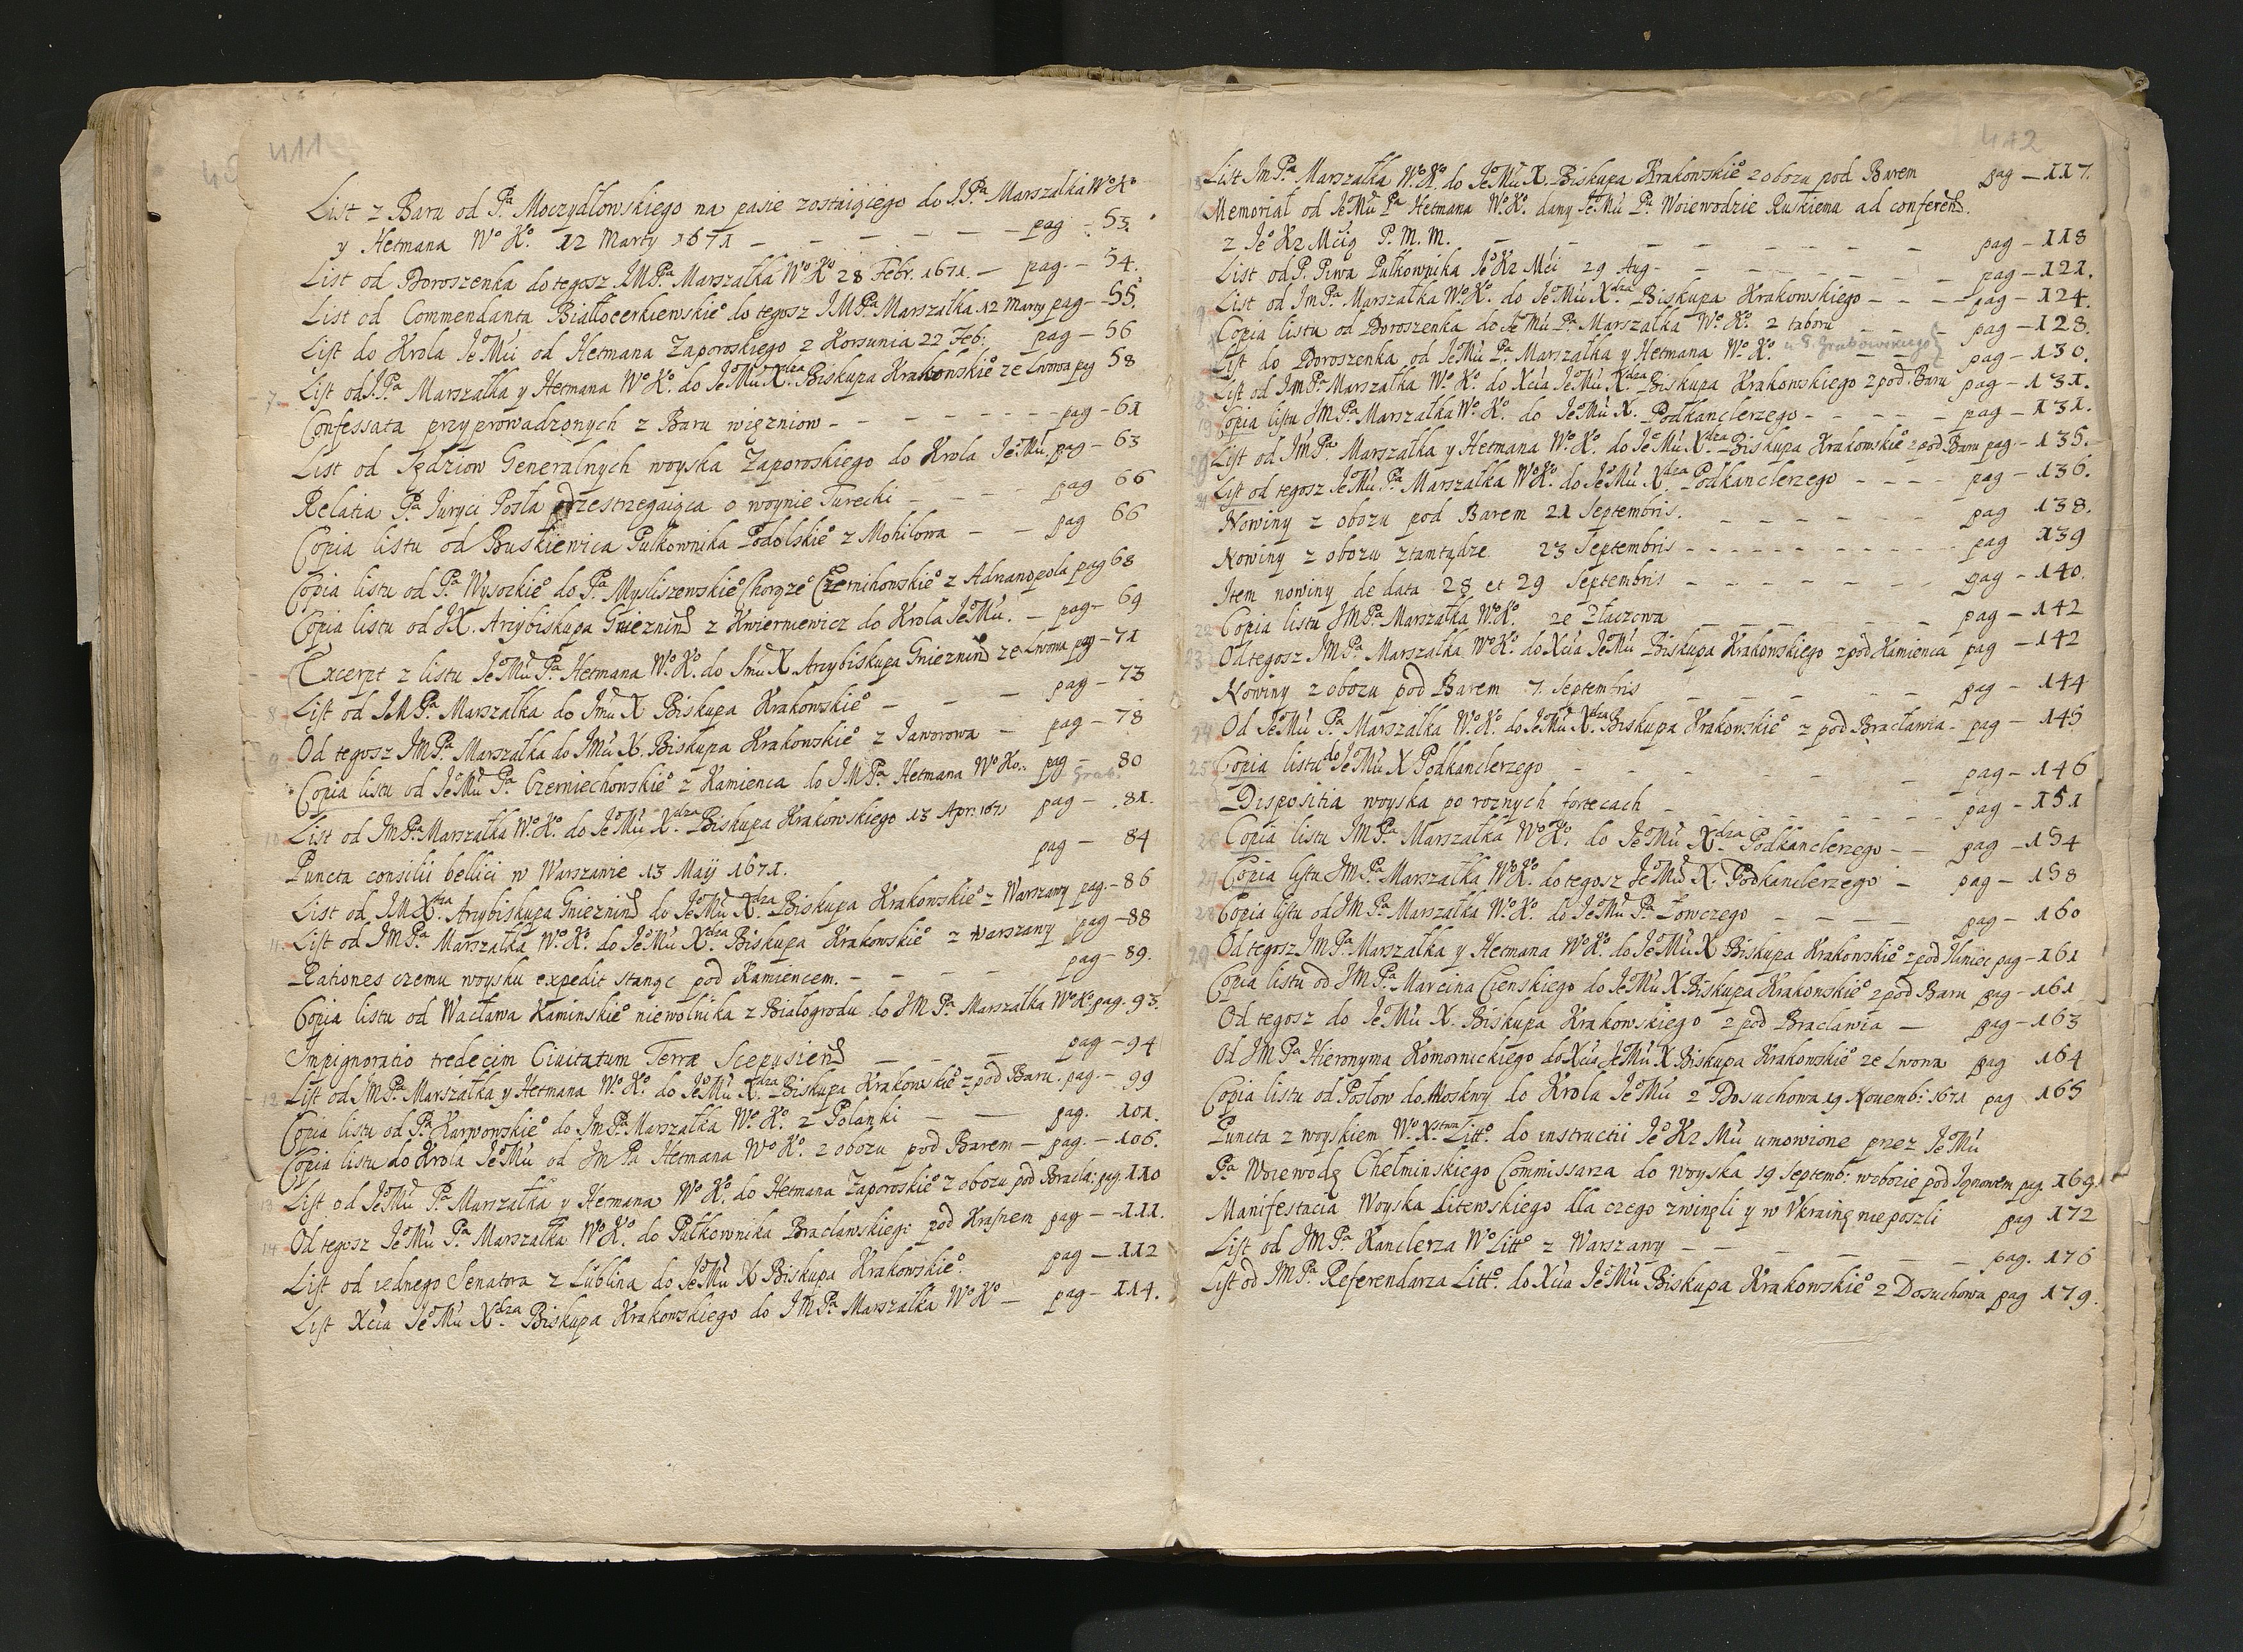 411
List z Baru od Pa. Moczydlowskiego na pasie zostaiącego do J.Pa Marszałka Wo Ko
y Hetmana Wo Ko. 12 Marty 1671 — — — — — — pag - 53.
List od Doroszenka do tegosz JMPa. Marszałka Wo Ko 28 Febr. 1671. — pag. — 54.
List od Commendanta Białłocerkiewskieo do tegosz JMPa Marszałka 12 Marty pag — 55.
List do Krola JeoMći od Hetmana Zaporoskiego z Korsunia 22 Feb: pag — 56
7. List od J.Pa Marszałka y Hetmana Wo Ko. do JeoMći Xdza Biskupa Krakowskieo ze Lwowa pag 58
Confessata przyprowadzonych z Baru więzniow - - - - - - - - pag — 61
List od Sędziow Generalnych woyska Zaporoskiego do Krola JeoMći pag — 63
Relatia Pa. Juryci Posła przestrzegaiąca o woynie Turecki — — — pag 66
Copia listu od Buskiewica Pułkownika Podolskieo z Mohilowa — — pag 66
Copia listu od Pa Wysockieo do Pa. Mysliszewskieo Chorążeo Czernihowskieo z Adrianopola pag 68
Copia listu od JX. Arcybiskupa Gnieznind z Kwierniewicz do Krola JeoMći. — pag — 69
Excerpt z listu JeoMći Pa Hetmana Wo. Ko. do Jmći X. Arcybiskupa Gnieznind ze Lwowa pag — 71
8. List od JM Pa. Marszałka do Jmći X Biskupa Krakowskieo — — — pag — 73
9. Od tegosz JMPa. Marszałka do JMći X. Biskupa Krakowskieo z Jaworowa — pag — 78
Copia listu od JeoMći Pa. Czerniechowskieo z Kamienca do JMPa. Hetmana Wo Ko. pag — 80
Grab.
10 List od JmPa. Marszałka Wo. Ko. do JeoMći Xdza Biskupa Krakowskiego 13 Apr: 1671 pag — 81.
Puncta consilii bellici w Warszawie 13 Maij 1671. pag — 84
List od JM Xdza. Arcybiskupa Gnieznind do JeoMći Xdza. Biskupa Krakowskieo z Warszawy pag. — 86
11. List od JMPa. Marszałka Wo. Ko. do JeoMći Xdza. Biskupa Krakowskieo z Warszawy pag — 88
Rationes czemu woysku expedit stanąc pod Kamiencem. — — — — pag — 89.
Copia listu od Wacława Kaminskieo niewolnika z Białogrodu do JM Pa. Marszałka Wo Ko. pag. 93.
Impignoratio tredecim Ciuitatum Terræ Scepusiend — — — — pag — 94
12 List od JMPa. Marszałka y Hetmana Wo. Ko. do JeoMći Xdza. Biskupa Krakowskieo z pod Baru. pag. — 99
Copia listu od Pa. Karwowskieo do JmPa Marszałka Wo. Ko. z Polanki — — pag. 101.
Copia listu do Krola JeoMći od Jm Pa Hetmana Wo Ko. z obozu pod Barem — pag. — 106.
13 List od JeoMći Pa. Marszałka y Hetmana Wo Ko. do Hetmana Zaporoskieo z obozu pod Bracła: pag. 110
14 Od tegosz JeoMći Pa. Marszałka Wo Ko. do Pułkownika Bracławskieg: pod Krasnem pag — 111.
List od iednego Senatora z Lublina do JeoMći X Biskupa Krakowskieo. pag — 112
List Xcia JeoMći Xdza Biskupa Krakowskiego do JMPa. Marszałka Wo Ko — pag — 114.
442
List Jm Pa. Marszałka Wo. Ko. do JeoMći X. Biskupa Krakowskieo z obozu pod Barem pag — 117.
Memoriał od JeoMći Pa Hetmana Wo. Ko. dany JeoMći Pu. Woiewodzie Ruskiemu ad conferend.
z Jeo K2 Mcią P. M. M. — — — — — — — pag — 118
List od P. Piwa Pułkownika Jeo K2 Mći 29 Aug - — — — — — pag — 121.
List od Jm Pa. Marszałka Wo. Ko. do JeoMći Xdza Biskupa Krakowskiego — — — pag — 124.
Copia listu od Doroszenka do JeoMći Pa. Marszałka Wo. Ko. z taboru — — pag — 128.
List do Doroszenka od JeoMći Pa. Marszałka y Hetmana Wo. Ko. u S. Grabowskiego pag — 130.
List od JmPa. Marszałka Wo. Ko. do Xcia JeoMći Xdza Biskupa Krakowskiego z pod Baru pag — 131.
Copia listu JM Pa. Marszałka Wo. Ko. do JeoMći X. Podkanclerzego - - - - - pag — 131.
List od JmPa. Marszałka y Hetmana Wo. Ko. do JeoMći Xdza Biskupa Krakowskieo z pod Baru pag — 135.
List od tegosz JeoMći Pa. Marszałka Wo Ko. do JeoMći Xdza Podkanclerzego - - - - pag — 136.
Nowiny z obozu pod Barem 21 Septembris. — — — — — — pag 138.
Nowiny z obozu ztamtądze. 23 Septembris - - - - - - - - - - - pag 139
Item nowiny de data 28 et 29 Septembris - - - - - - - - pag — 140.
22 Copia listu JMPa. Marszałka Wo. Ko. ze Złaczowa — — — — pag — 142
23 Od tegosz JMPa. Marszałka Wo Ko. do Xcia JeoMći Biskupa Krakowskiego z pod Kamienca pag — 142
Nowiny z obozu pod Barem 7. Septembris — — — — — pag — 144
24 Od JeoMći Pa. Marszałka Wo. Ko. do JeoMći Xdza Biskupa Krakowskieo z pod Bracławia - pag — 145
25 Copia listu do JeoMći X Podkanclerzego — — — — — pag — 146
Dispositia woyska po roznych fortecach — — — — — — pag — 151
26 Copia listu JM Pa. Marszałka Wo Ko. do JeoMći Xdza. Podkanclerzego - — pag — 154
27 Copia listu JM Pa. Marszałka Wo Ko. do tegosz JeoMći X. Podkanclerzego — pag — 158
28 Copia listu od JM Pa. Marszałka Wo. Ko. do JeoMći Pa. Łowczego — — — — pag — 160
29 Od tegosz JM Pa. Marszałka y Hetmana Wo Ko. do JeoMći X Biskupa Krakowskieo z pod Iliniec pag — 161
Copia listu od JM Pa. Marcina Cienskiego do JeoMći X Biskupa Krakowskieo z pod Baru pag — 161
Od tegosz do JeoMći X. Biskupa Krakowskiego z pod Bracławia — pag — 163
Od JM Pa Hieronyma Komornickiego do Xcia JeoMći X Biskupa Krakowskieo ze Lwowa pag 164
Copia listu od Posłow do Moskwy do Krola JeoMći z Dosuchowa 19 Nouemb: 1671 pag 165
Puncta z woyskiem Wo. Xstwa Litto. do instructii Jeo K2 Mći umowione przez JeoMći
Pa Woiewodę Chełminskiego Commissarza do woyska 19 Septemb: w obozie pod Jgnowem pag. 169.
Manifestacia Woyska Litewskiego dla czego zwinęli y w Vkrainę nie poszli pag 172
List od JMPa. Kanclerza Wo Litto z Warszawy — — — — — — pag. 176
List od JMPa. Referendarza Litto. do Xcia JeoMći Biskupa Krakowskieo z Dosuchowa pag 179.